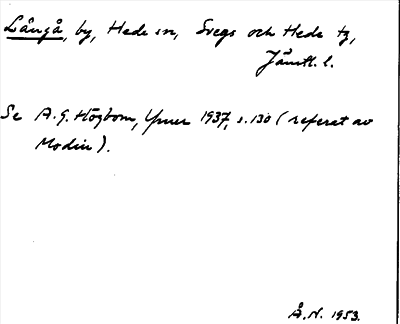 Långå, by, Hede sn, Svegs och Hede tg,
Jämtl. l.
Se A.G. Högbom, Ymer 1937, s. 130 (referat av
Modin).
Å.N. 1953.